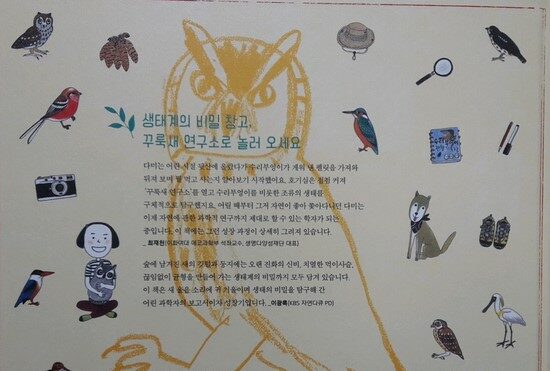 생태계의 비밀 창고,
꾸룩새 연구소로 놀러 오세요
다미는 어린 시절 뒷산에 올랐다가 수리부엉이가 게워 낸 펠릿을 가져와
뒤져 보며 뭘 먹고 사는지 알아보기 시작했어요. 호기심은 점점 커져
'꾸룩새 연구소'를 열고 수리부엉이를 비롯한 조류의 생태를
구체적으로 탐구했지요. 어릴 때부터 그저 자연이 좋아 쫓아다니던 다미는
이제 자연에 관한 과학적 연구까지 제대로 할 수 있는 학자가 되는
중입니다. 이 책에는 그런 성장 과정이 상세히 그려져 있습니다.
_ 최재천(이화여대 에코과학부 석좌교수, 생명다양성재단 대표)
숲에 남겨진 새의 깃털과 둥지에는 오랜 진화의 신비, 치열한 먹이사슬,
끊임없이 균형을 만들어 가는 생태계의 비밀까지 모두 담겨 있습니다.
이 책은 새 울음 소리에 귀 기울이며 생태의 비밀을 탐구해 간
어린 과학자의 보고서이자 성장기입니다. _이광록(KBS 자연다큐 PD)